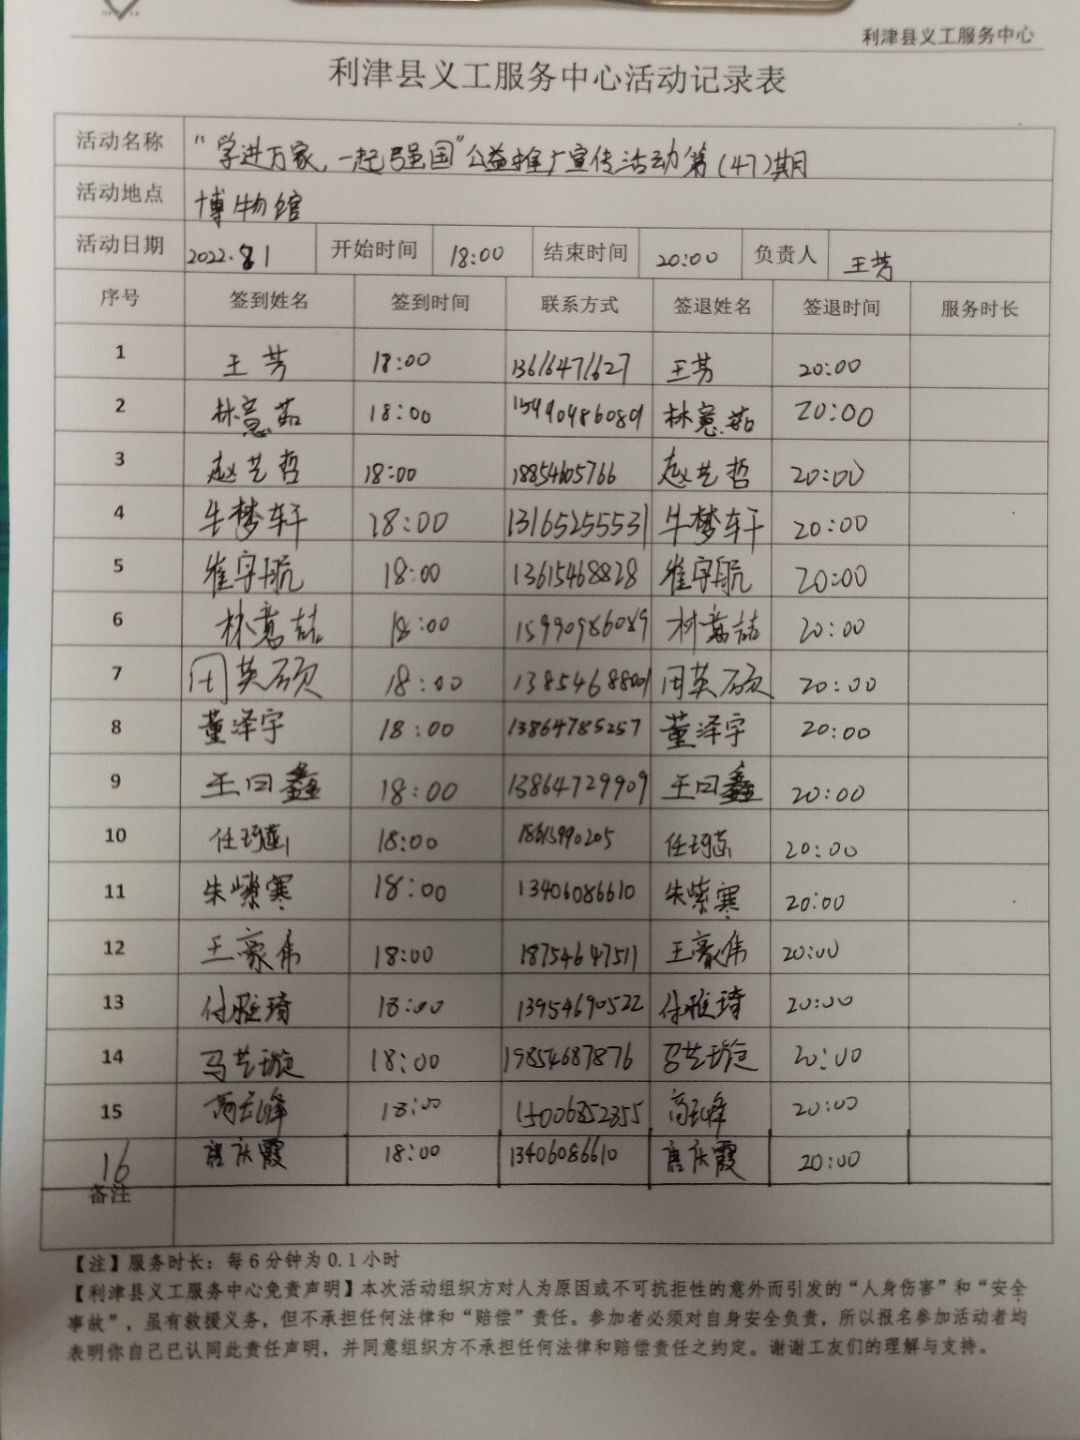 利津县义工服务中心
利津县义工服务中心活动记录表
活动名称 "学进万家,一起强国"公益推广宣传活动第(47)期
活动地点 博物馆
活动日期 2022.8.1 开始时间 18:00 结束时间 20:00 负责人 王芳
序号 签到姓名 签到时间 联系方式 签退姓名 签退时间 服务时长
1 王芳 18:00 13616471627 王芳 20:00
2 林意茹 18:00 林意茹 20:00
3 赵艺哲 18:00 18854605766 赵艺哲 20:00
4 牛梦轩 18:00 13165255531 牛梦轩 20:00
5 崔宇航 18:00 13615468828 崔宇航 20:00
6 林意喆 18:00 15990986089 林意喆 20:00
7 田英硕 18:00 田英硕 20:00
8 董泽宇 18:00 13864785257 董泽宇 20:00
9 王曰鑫 18:00 13864729909 王曰鑫 20:00
10 任珂菡 18:00 任珂菡 20:00
11 朱紫寒 18:00 13406086610 朱紫寒 20:00
12 王豪伟 18:00 18754647511 王豪伟 20:00
13 付雅琦 18:00 13954690522 付雅琦 20:00
14 马艺璇 18:00 19854687876 马艺璇 20:00
15 18:00 15006852355 20:00
16 唐庆霞 18:00 13406086610 唐庆霞 20:00
备注
【注】服务时长:每6分钟为0.1小时
【利津县义工服务中心免责声明】本次活动组织方对人为原因或不可抗拒性的意外而引发的“人身伤害”和“安全
事故”,虽有救援义务,但不承担任何法律和“赔偿”责任。参加者必须对自身安全负责,所以报名参加活动者均
表明你自己已认同此责任声明,并同意组织方不承担任何法律和赔偿责任之约定。谢谢工友们的理解与支持。